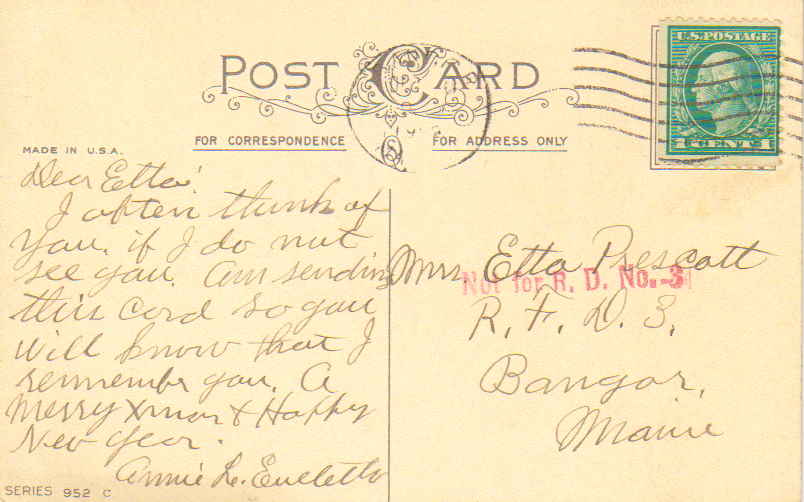 POST CARD
U.S. POSTAGE
1 CENT 1
FOR CORRESPONDENCE
FOR ADDRESS ONLY
MADE IN U.S.A.
Dear Etta:
I often think of
you. if I do not
see you. Am sending
this card so you
will know that I
remember you. A
Merry Xmas & Happy
New Year.
Annie L.
SERIES 952 C
Mrs. Etta Prescott
Not for R. D. No.-3
R. F. D. 3.
Bangor,
Maine